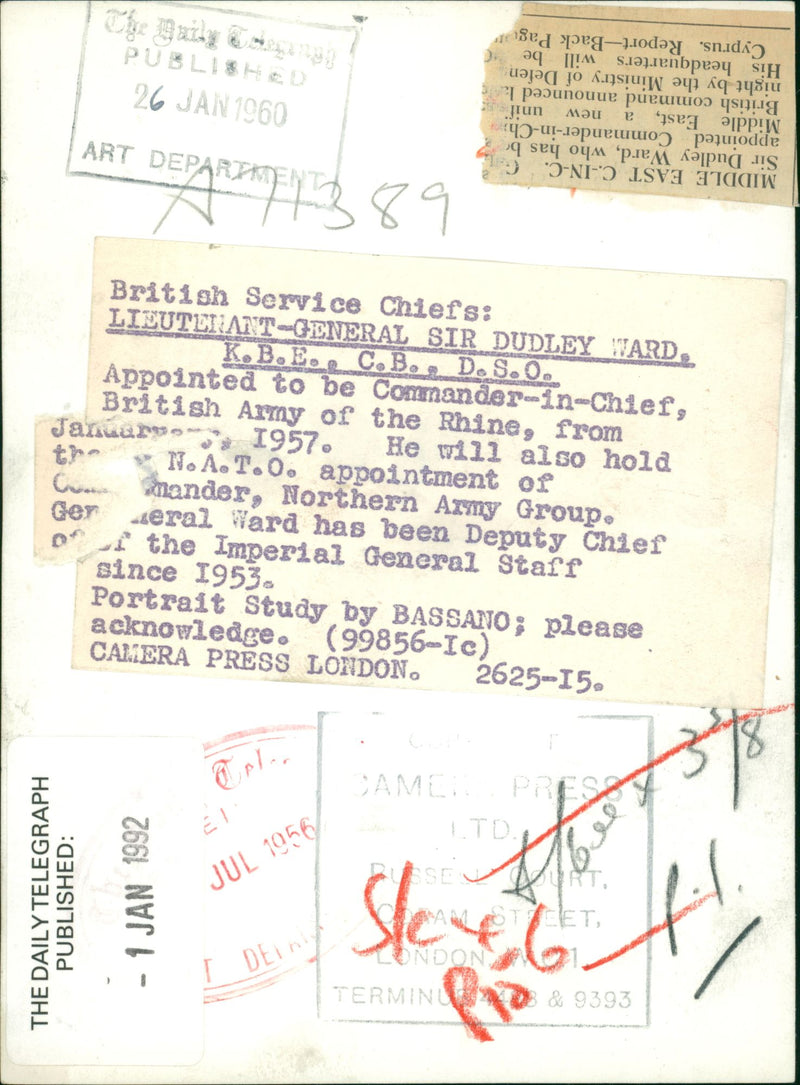 The Daily Telegraph
PUBLISHED
26 JAN 1960
ART DEPARTMENT
A 71389
MIDDLE EAST C.-IN-C.
Sir Dudley Ward, who has
appointed Commander-in-Ch
Middle East, a new
British command announced
night by the Ministry of Defen
His headquarters will be
Cyprus. Report—Back Page
British Service Chiefs:
LIEUTENANT-GENERAL SIR DUDLEY WARD.
K.B.E., C.B., D.S.O.
Appointed to be Commander-in-Chief,
British Army of the Rhine, from
1957. He will also hold
N.A.T.O. appointment of
mander, Northern Army Group.
General Ward has been Deputy Chief
of the Imperial General Staff
since I953.
Portrait Study by BASSANO; please
acknowledge. (99856-Ic)
CAMERA PRESS LONDON. 2625-I5.
THE DAILY TELEGRAPH
PUBLISHED:
- 1 JAN 1992
JUL 1956
CAMERA PRESS
LTD.
RUSSELL COURT,
CORAM STREET,
LONDON, W.C.1.
TERMINUS & 9393
3 3/8
P.1.